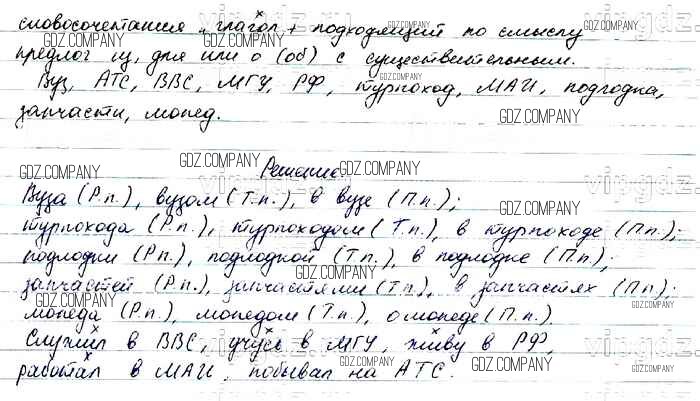 словосочетания „глагол + подходящий по смыслу
предлог из, для или о (об) с существительным.
Вуз, АТС, ВВС, МГУ, РФ, турпоход, МАИ, подлодка,
запчасти, мопед.
Решение
Вуза (Р.п.), вузом (Т.п.), в вузе (П.п.);
турпохода (Р.п.), турпоходом (Т.п.), в турпоходе (П.п.);
подлодки (Р.п.), подлодкой (Т.п.), в подлодке (П.п.);
запчастей (Р.п.), запчастями (Т.п.), в запчастях (П.п.);
мопеда (Р.п.), мопедом (Т.п.), о мопеде (П.п.).
Служил в ВВС, учусь в МГУ, живу в РФ,
работал в МАИ, побывал на АТС.